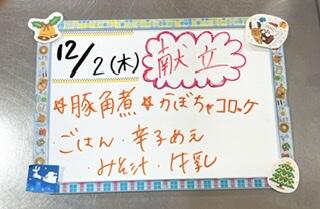 12/2(木) 献立
☆豚角煮 ☆かぼちゃコロッケ
・ごはん・辛子あえ
・みそ汁・牛乳